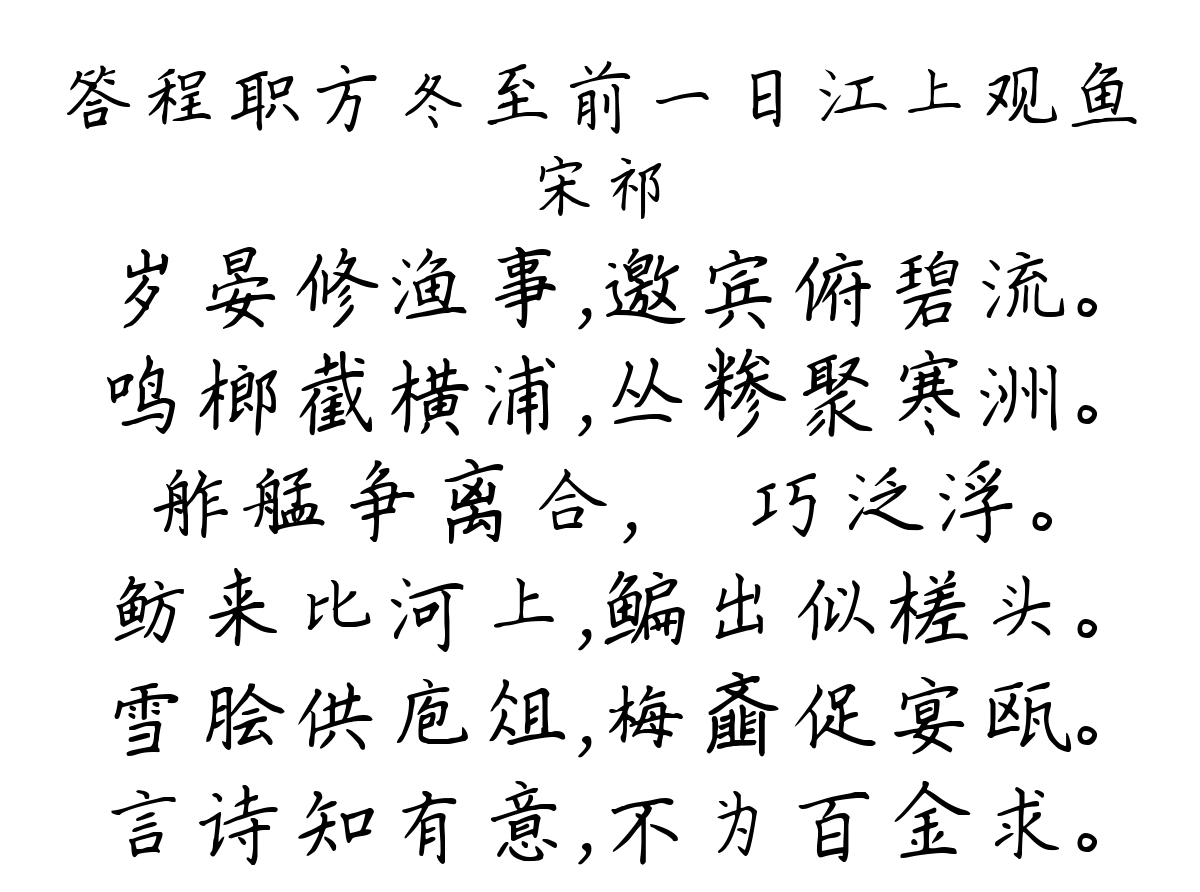 答程职方冬至前一日江上观鱼
宋祁
岁晏修渔事,邀宾俯碧流。
鸣榔截横浦,丛糁聚寒洲。
舴艋争离合, 巧泛浮。
鲂来比河上,鳊出似槎头。
雪脍供庖俎,梅齑促宴瓯。
言诗知有意,不为百金求。